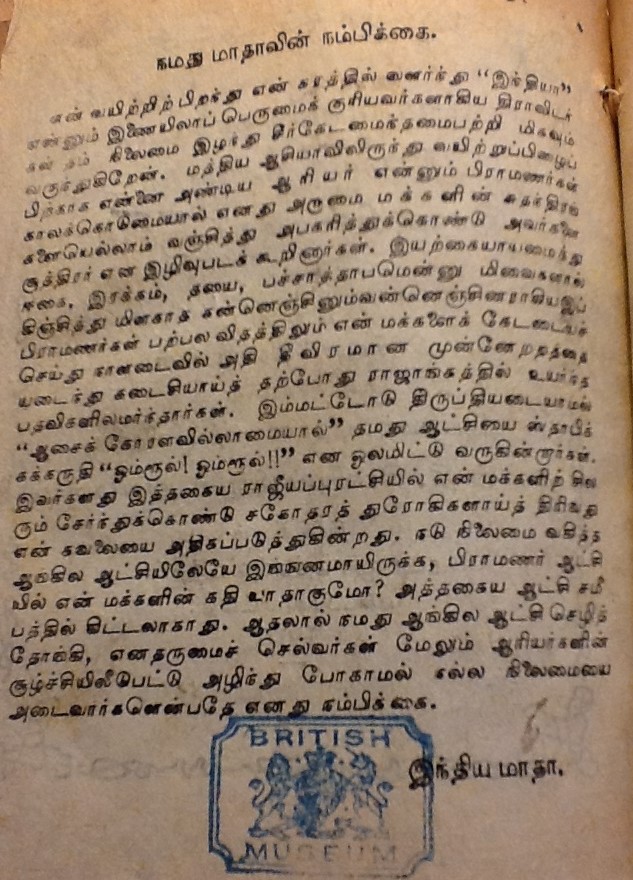 நமது மாதாவின் நம்பிக்கை.
என் வயிற்றிற் பிறந்து என் கரத்தில் வளர்ந்து “இந்தியா”
என்னும் இணையிலாப் பெருமைக் குரியவர்களாகிய திராவிடர்
கள் தம் நிலைமை இழந்து சீர்கேடடைந்தமைபற்றி மிகவும்
வருந்துகிறேன். மத்திய ஆசியாவிலிருந்து வயிற்றுப்பிழைப்
பிற்காக என்னை அண்டிய ஆரியர் என்னும் பிராமணர்கள்
காலக்கொடுமையால் எனது அருமை மக்களின் சுதந்திரங்
களையெல்லாம் வஞ்சித்து அபகரித்துக்கொண்டு அவர்களை
சூத்திரர் என இழிவுபடக் கூறினார்கள். இயற்கையாயமைந்து
ஈகை, இரக்கம், தயை, பச்சாத்தாபமென்னு மிவைகளால்
கிஞ்சித்து மிளகாத கன்னெஞ்சினும்வன்னெஞ்சினராகியஇப்
பிராமணர்கள் பற்பல விதத்திலும் என் மக்களைக் கேடடையச்
செய்து நாளடைவில் அதி தீவிரமான முன்னேற்றத்தை
யடைந்து கடைசியாய்த் தற்போது ராஜாங்கத்தில் உயர்ந்த
பதவிகளிலமர்ந்தார்கள். இம்மட்டோடு திருப்தியடையாமல்
“ஆசைக் கோரளவில்லாமையால்” தமது ஆட்சியை ஸ்தாபிக்
கக்கருதி “ஓம்ரூல்! ஓம்ரூல்!!” என ஓலமிட்டு வருகின்றார்கள்.
இவர்களது இத்தகைய ராஜீயப்புரட்சியில் என் மக்களிற் சில
ரும் சேர்ந்துக்கொண்டு சகோதரத் துரோகிகளாய்த் திரிவது
என் கவலையை அதிகப்படுத்துகின்றது. நடு நிலைமை வகித்த
ஆங்கில ஆட்சியிலேயே இங்ஙனமாயிருக்க, பிராமணர் ஆட்சி
யில் என் மக்களின் கதி யாதாகுமோ? அத்தகைய ஆட்சி சமீ
பத்தில் கிட்டலாகாது. ஆதலால் நமது ஆங்கில ஆட்சி செழித்
தோங்கி, எனதருமைச் செல்வர்கள் மேலும் ஆரியர்களின்
சூழ்ச்சியிலீடுபட்டு அழிந்து போகாமல் நல்ல நிலைமையை
அடைவார்களென்பதே எனது நம்பிக்கை.
இந்திய மாதா.
BRITISH
MUSEUM